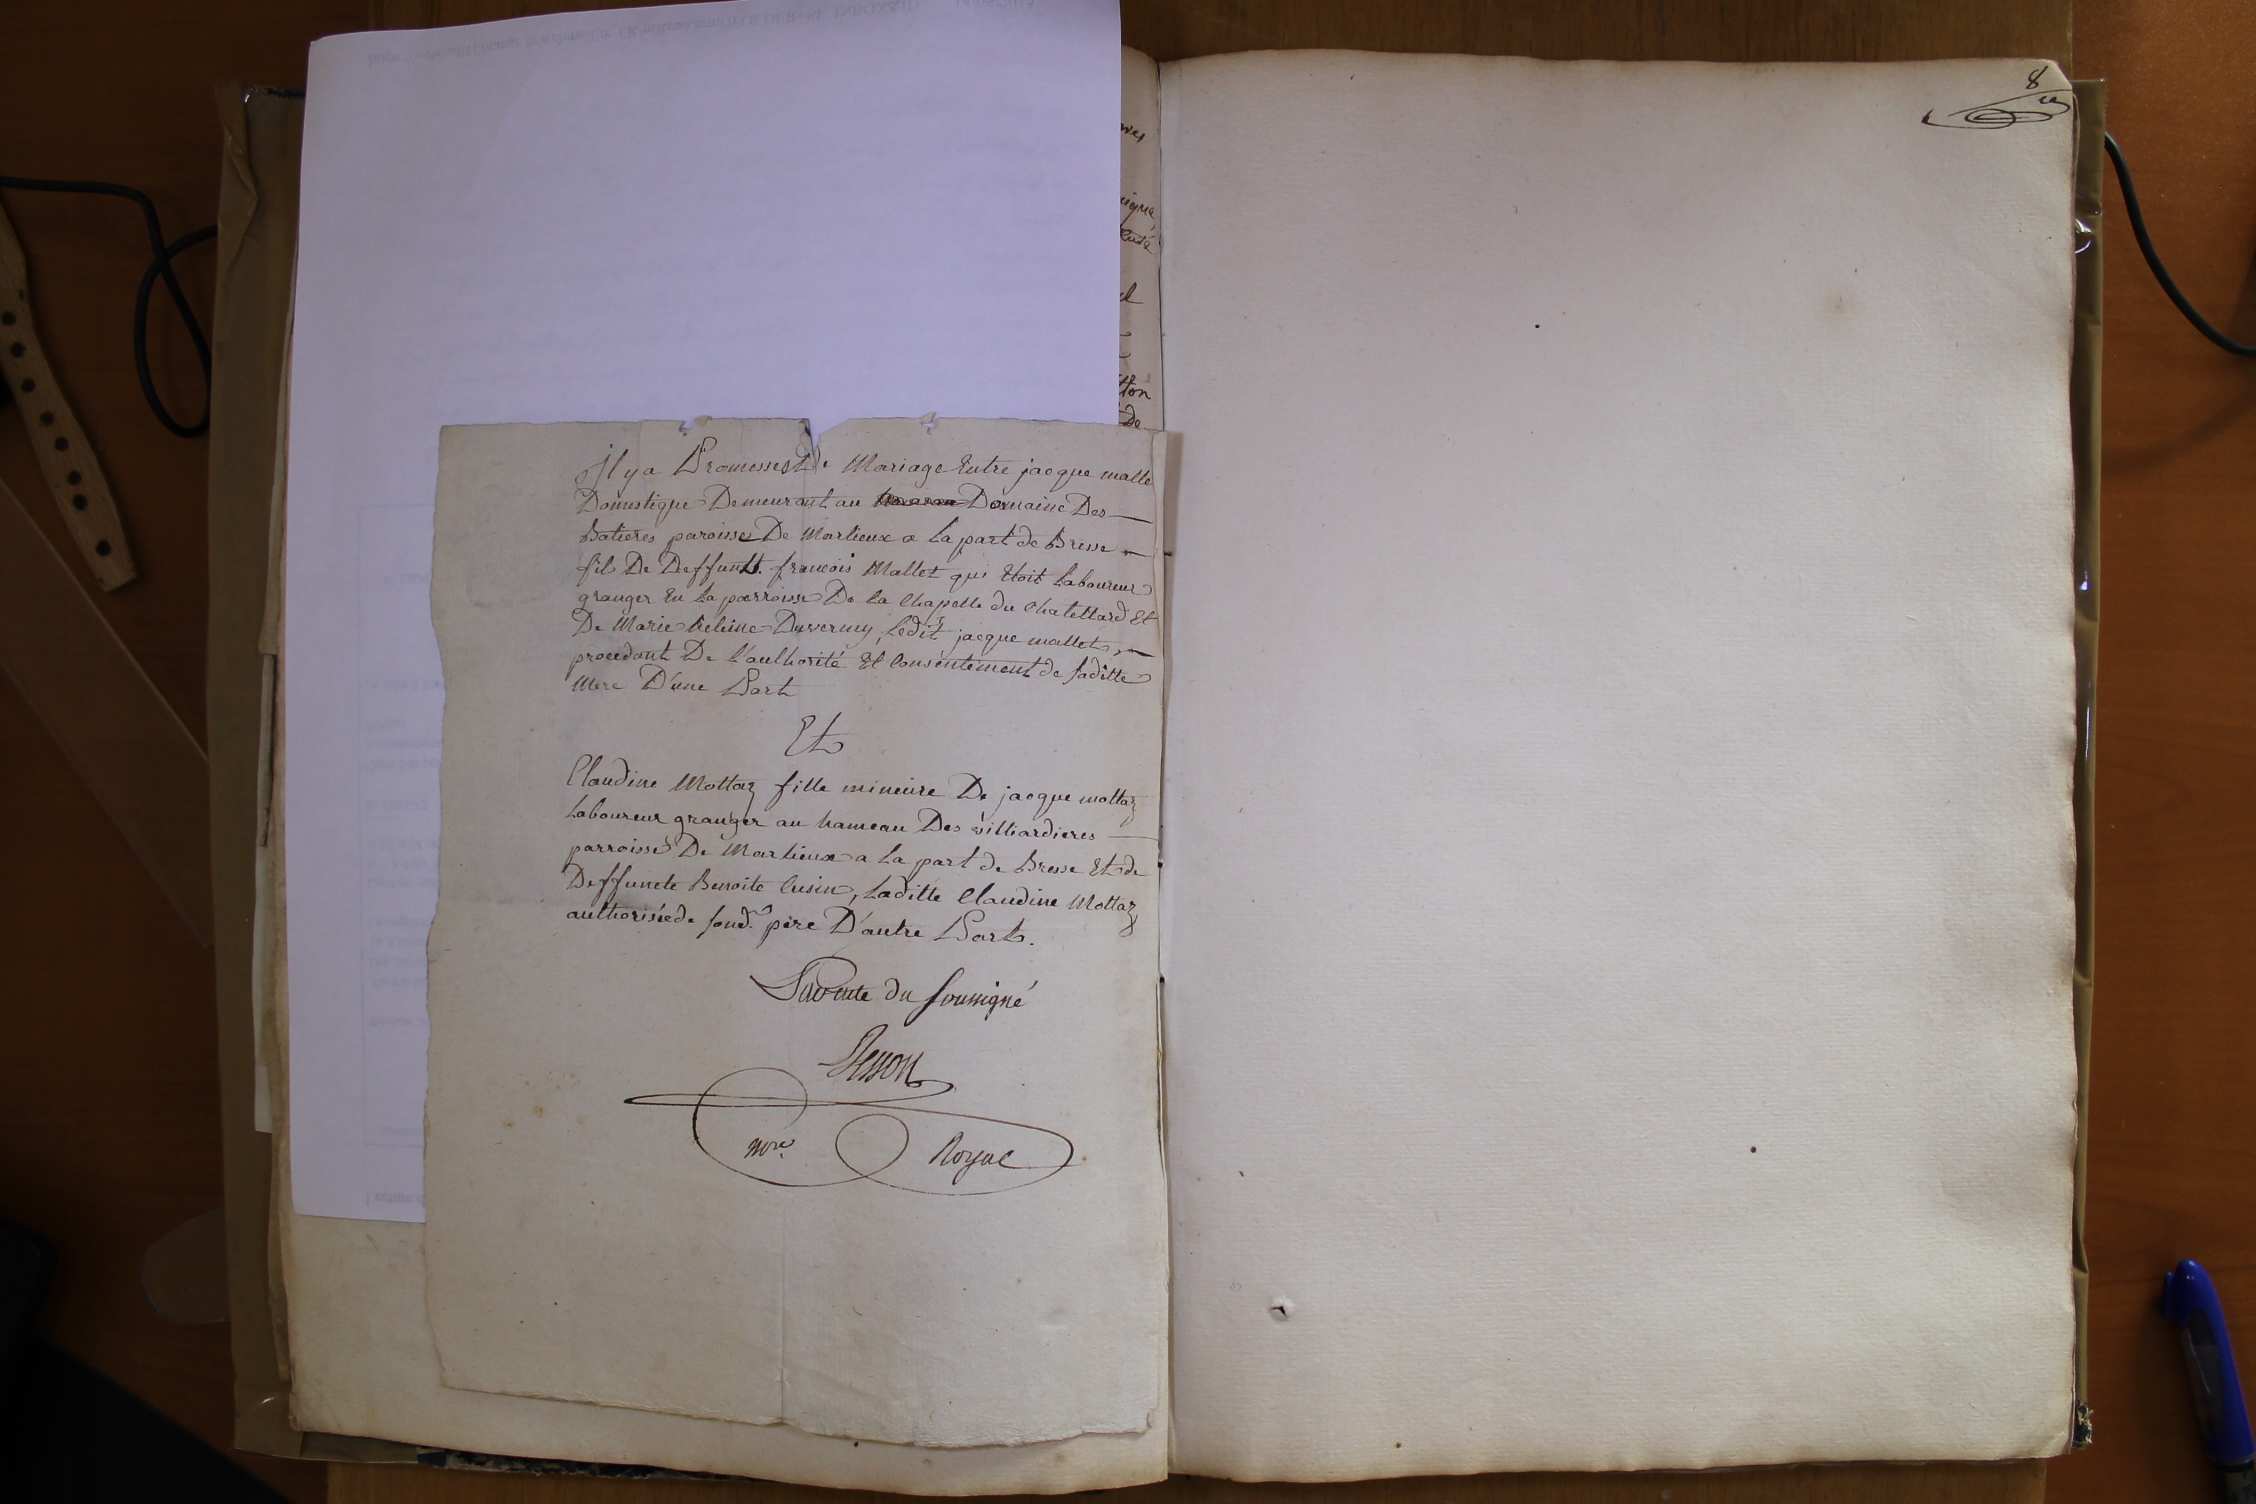 8
Il y a Promesses De Mariage Entre jacque mallet
Domestique Demeurant au Domaine Des
Batieres paroisse De Marlieux a la part de Bresse
fils De Deffunt francois Mallet qui Etoit laboureur
granger En la parroisse De la Chapelle du Chatellard Et
De Marie heleine Duverney, ledit jacque mallet,
procedant De l'authorité Et Consentement de saditte
Mere D'une Part
Et
Claudine Mottaz fille mineure De jacque mottaz
laboureur granger au hameau Des villiardieres
parroisse De Marlieux a la part de Bresse Et de
Deffuncte Benoite Cusin, laditte Claudine Mottaz
authorisée de sond. père D'autre Part.
du soussigné
nore. Royal